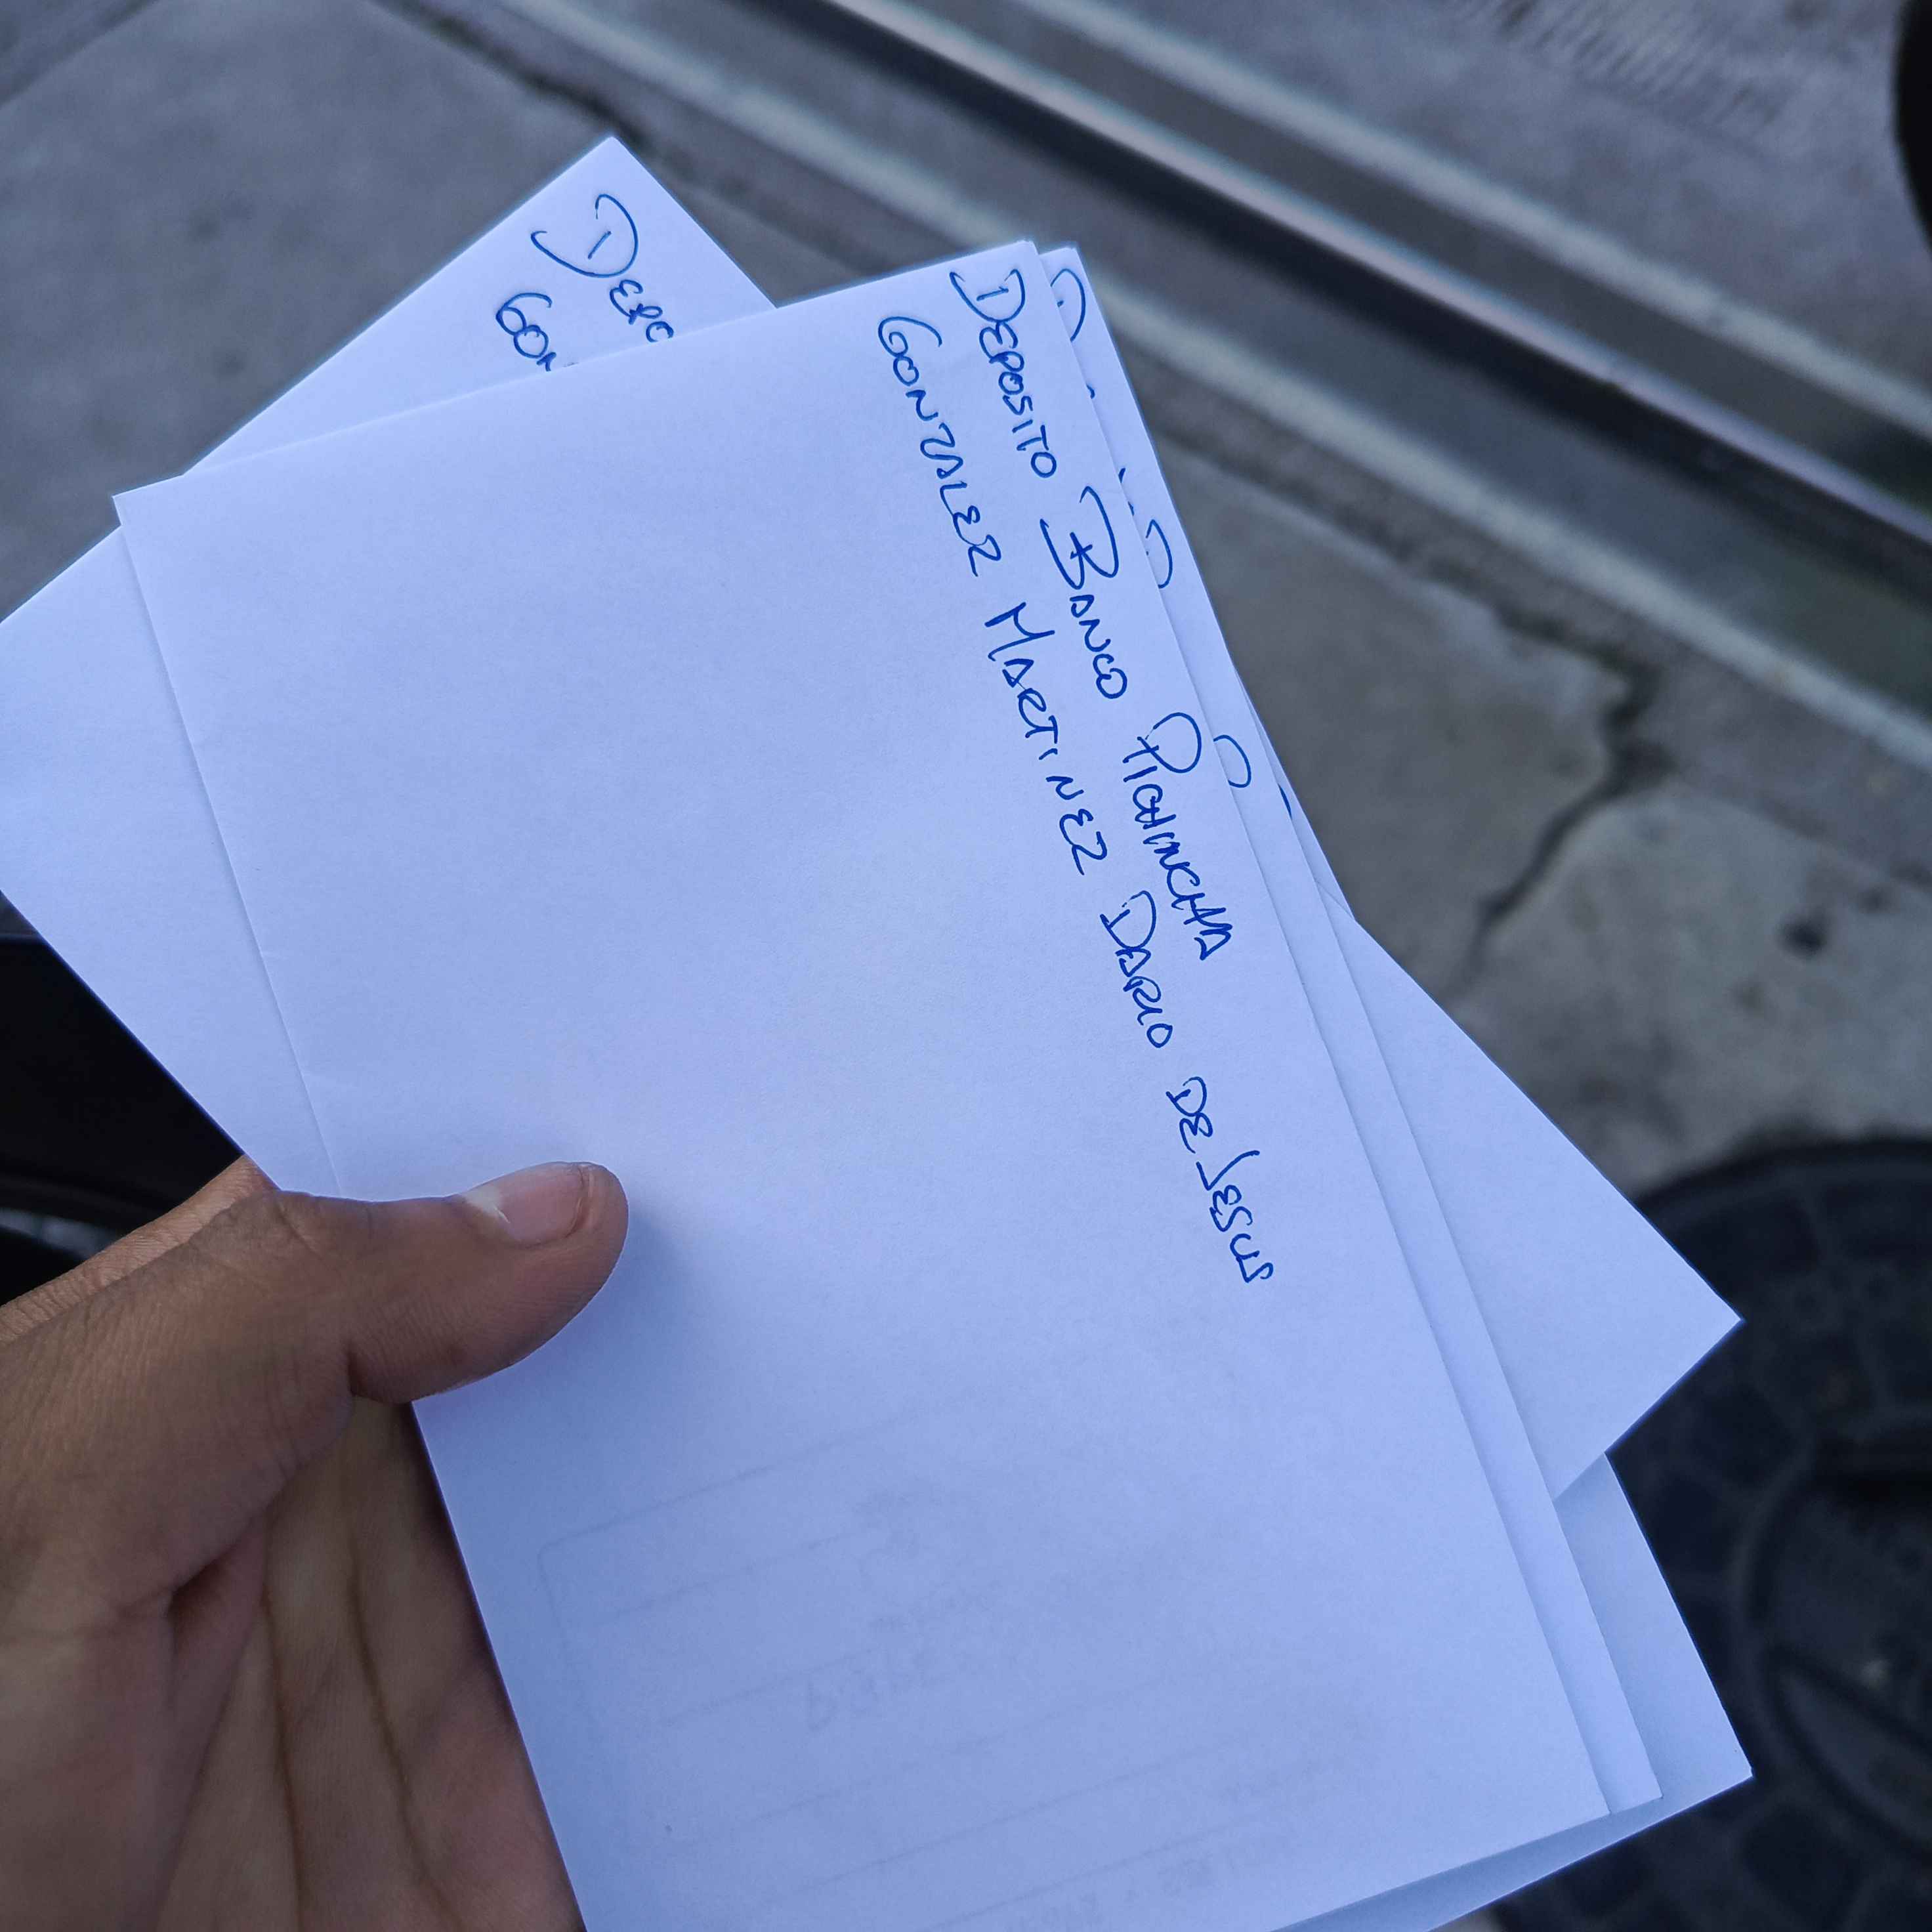 DEPOSITO BANCO PICHINCHA
GONZALEZ MARTINEZ DARIO DE JESUS